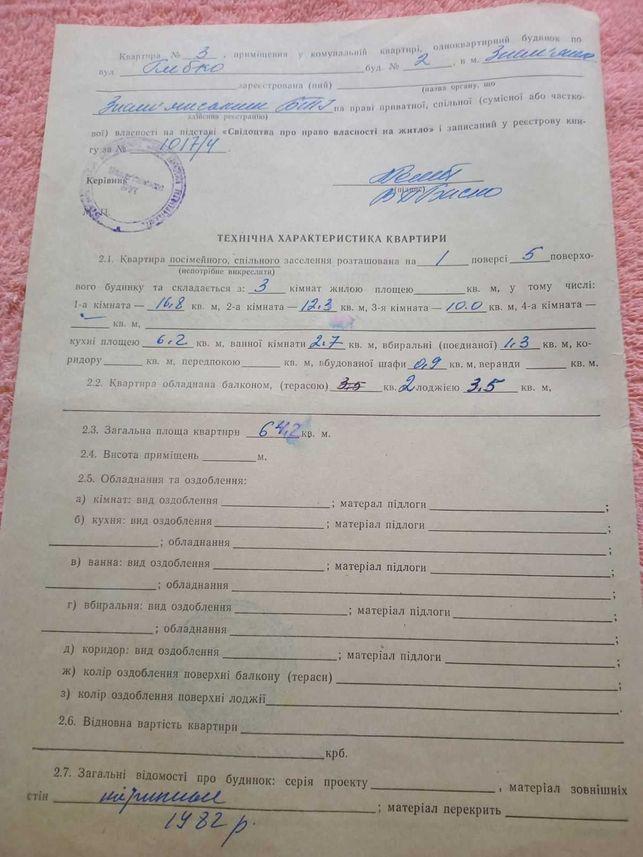 Квартира № 3, приміщення у комунальній квартирі, одноквартирний будинок по
вул Глібко буд. № 2, в м. Знам'янка
зареєстрована (ний)
(назва органу, що
Знам'янським БТІ на праві приватної, спільної (сумісної або частко-
здійснив реєстрацію)
вої) власності на підставі «Свідоцтва про право власності на житло» і записаний у реєстрову кни-
гу за № 1017/4.
Керівник
(підпис)
ТЕХНІЧНА ХАРАКТЕРИСТИКА КВАРТИРИ
2.1. Квартира посімейного, спільного заселення розташована на 1 поверсі 5 поверхо-
(непотрібне викреслити)
вого будинку та складається з: 3 кімнат жилою площею кв. м, у тому числі:
1-а кімната — 16,8 кв. м, 2-а кімната — 12,3 кв. м, 3-я кімната — 10.0 кв. м, 4-а кімната —
кв. м,
кухні площею 6,2 кв. м, ванної кімнати 2,7 кв. м, вбиральні (поєднаної) 1,3 кв. м, ко-
ридору кв. м, передпокою кв. м, вбудованої шафи 0,9 кв. м, веранди кв. м.
2.2. Квартира обладнана балконом, (терасою) 3,5 кв. 2 лоджією 3,5 кв. м,
2.3. Загальна площа квартири 64,2 кв. м.
2.4. Висота приміщень м.
2.5. Обладнання та оздоблення:
а) кімнат: вид оздоблення ; матерал підлоги ;
б) кухня: вид оздоблення ; матеріал підлоги ;
; обладнання ;
в) ванна: вид оздоблення ; матеріал підлоги ;
; обладнання ;
г) вбиральня: вид оздоблення ; матеріал підлоги ;
; обладнання ;
д) коридор: вид оздоблення ; матеріал підлоги ;
ж) колір оздоблення поверхні балкону (тераси) ;
з) колір оздоблення поверхні лоджії .
2.6. Відновна вартість квартири
крб.
2.7. Загальні відомості про будинок: серія проекту , матеріал зовнішніх
стін ; матеріал перекрить
1982 р.